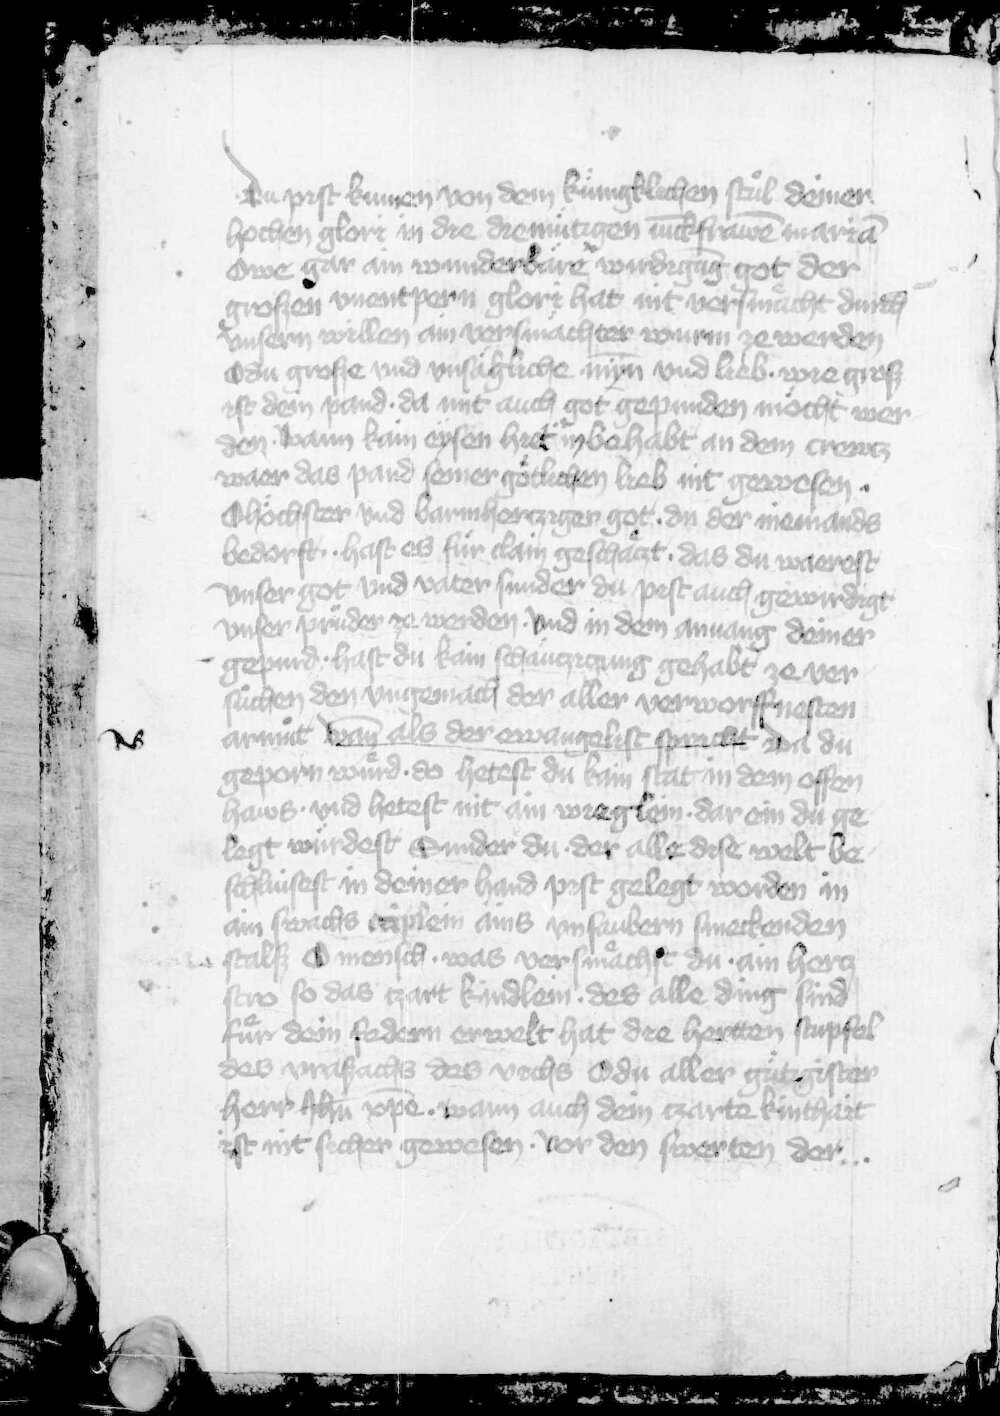 Du pist kumen von dem künigklichen stůl deiner
hochen glori in die diemütigen iūckfrawē mariā
Owe gar ain wunderbäre wirdigūg got der
großen vnentpern glori hat nit versmächt durch
vnsern willen ain versmächter wurm ze werden
O du große vnd vnsägliche myn vnd lieb · wie groß
ist dein pand · da mit auch got gepunden möcht wer
den · Wann kain eysen hiet in behabt an dem crewtz
waer das pand seiner götlichen lieb nit gewesen ·
O höchster vnd barmhercziger got · du der niemands
bedorft · hast es für clain geschäczt · das du waerest
vnser got vnd vater sunder du pist auch gewirdigt
vnser průder ze werden · Vnd in dem anuang deiner
gepurd · hast du kain schäuczigung gehabt ze ver
sůchen den vngemach der aller verworffnesten
armůt Wañ als der ewangelist spricht Da du
geporn würd · do hetest du kain stat in dem offen
haws · vnd hetest nit ain wieglein · dar ein du ge
legt würdest Sunder du · der alle dise welt be
schlüisest in deiner hand pist gelegt worden in
ain swachs criplein ains vnsaubern smeckenden
stalß O mensch · was versmächst du · ain hertz
stro so das czart kindlein · des alle ding sind
für dein federn erwelt hat die hertten stupfel
des vraßachs des vichs O du aller gütigister
herr Jhū xpē · wann auch dein czarte kinthait
ist nit sicher gewesen · Vor den swerten der